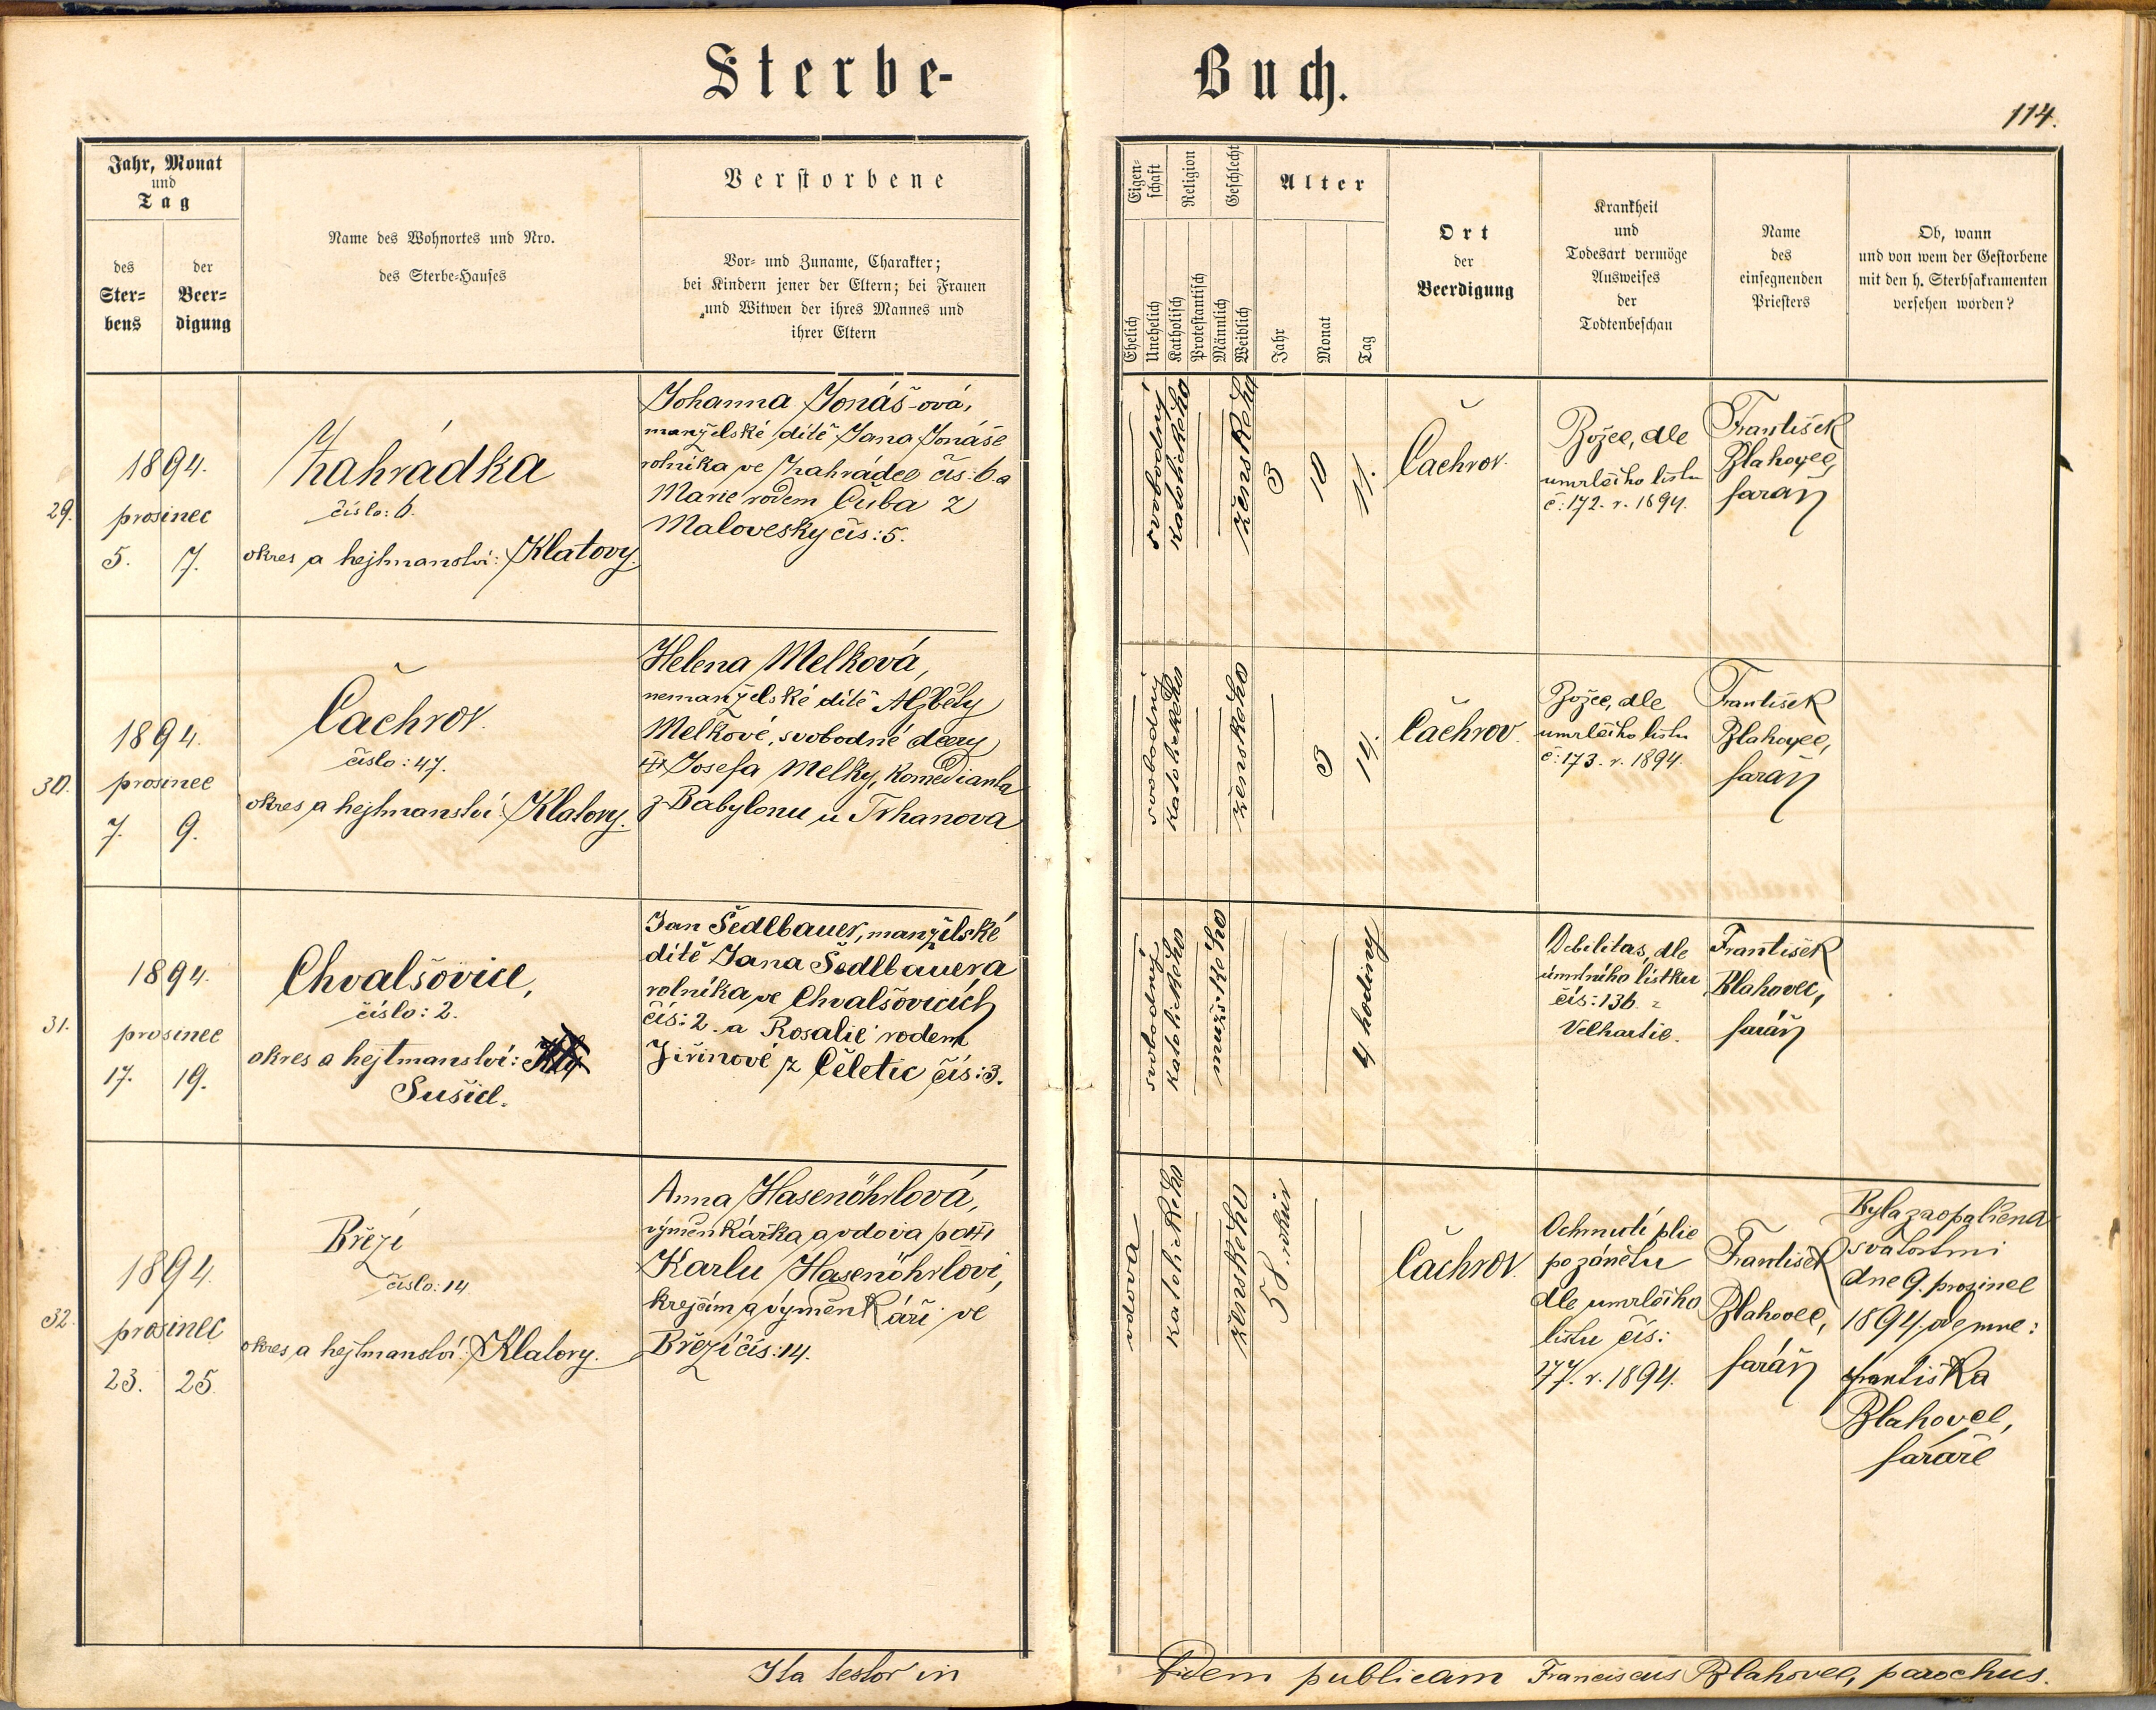 Sterbe-
Buch.
114.
Jahr, Monat
und
Tag
des
Ster-
bens
der
Beer-
digung
Name des Wohnortes und Nro.
des Sterbe-Hauses
Verstorbene
Vor- und Zuname, Charakter;
bei Kindern jener der Eltern; bei Frauen
und Witwen der ihres Mannes und
ihrer Eltern
Eigen-
schaft
Religion
Geschlecht
Alter
Ehelich
Unehelich
Katholisch
Protestantisch
Männlich
Weiblich
Jahr
Monat
Tag
Ort
der
Beerdigung
Krankheit
und
Todesart vermöge
Ausweises
der
Todtenbeschau
Name
des
einsegnenden
Priesters
Ob, wann
und von wem der Gestorbene
mit den h. Sterbsakramenten
versehen worden?
29.
1894.
prosinec
5. 7.
Zahrádka
číslo: 6.
okres a hejtmanství: Klatovy.
Johanna Jonáš-ová,
manželské dítě Jana Jonáše
rolníka ve Zahrádce čís: 6. a
Marie rodem Čuba z
Malovesky čís: 5.
svobodný
katolického
ženského
3
10
11.
Čachrov.
Božec, dle
umrlčího listu
č: 172. r. 1894.
František
Blahovec,
farář
30.
1894.
prosinec
7. 9.
Čachrov.
číslo: 47.
okres a hejtmanství: Klatovy.
Helena Melková,
nemanželské dítě Alžběty
Melkové, svobodné dcery
Josefa Melky, komedianta
z Babylonu u Trhanova
svobodný
katolického
ženského
3
14.
Čachrov.
Božec, dle
umrlčího listu
č: 173. r. 1894.
František
Blahovec,
farář
31.
1894.
prosinec
17. 19.
Chvalšovice,
číslo: 2.
okres a hejtmanství:
Sušice.
Jan Šedlbauer, manželské
dítě Jana Šedlbauera
rolníka ve Chvalšovicích
čís: 2. a Rosalie rodem
Jiřinové z Čeletic čís: 3.
svobodný
katolického
mužského
4 hodiny
Debilitas, dle
úmrtního lístku
čís: 136. z
Velhartic.
František
Blahovec,
farář
32.
1894.
prosinec
23. 25.
Březí
číslo: 14
okres a hejtmanství: Klatovy.
Anna Hasenöhrlová,
výměnkářka a vdova po
Karlu Hasenöhrlovi,
krejčím a výměnkáři ve
Březí čís: 14.
vdova
katolického
ženského
58 roků
Čachrov.
Ochrnutí plic
po zánětu
dle umrlčího
listu čís:
177. r. 1894.
František
Blahovec,
farář
Byla zaopatřena
svátostmi
dne 9. prosince
1894. ode mne:
Františka
Blahovec,
faráře
Ita testor in
fidem publicam Franciscus Blahovec, parochus.